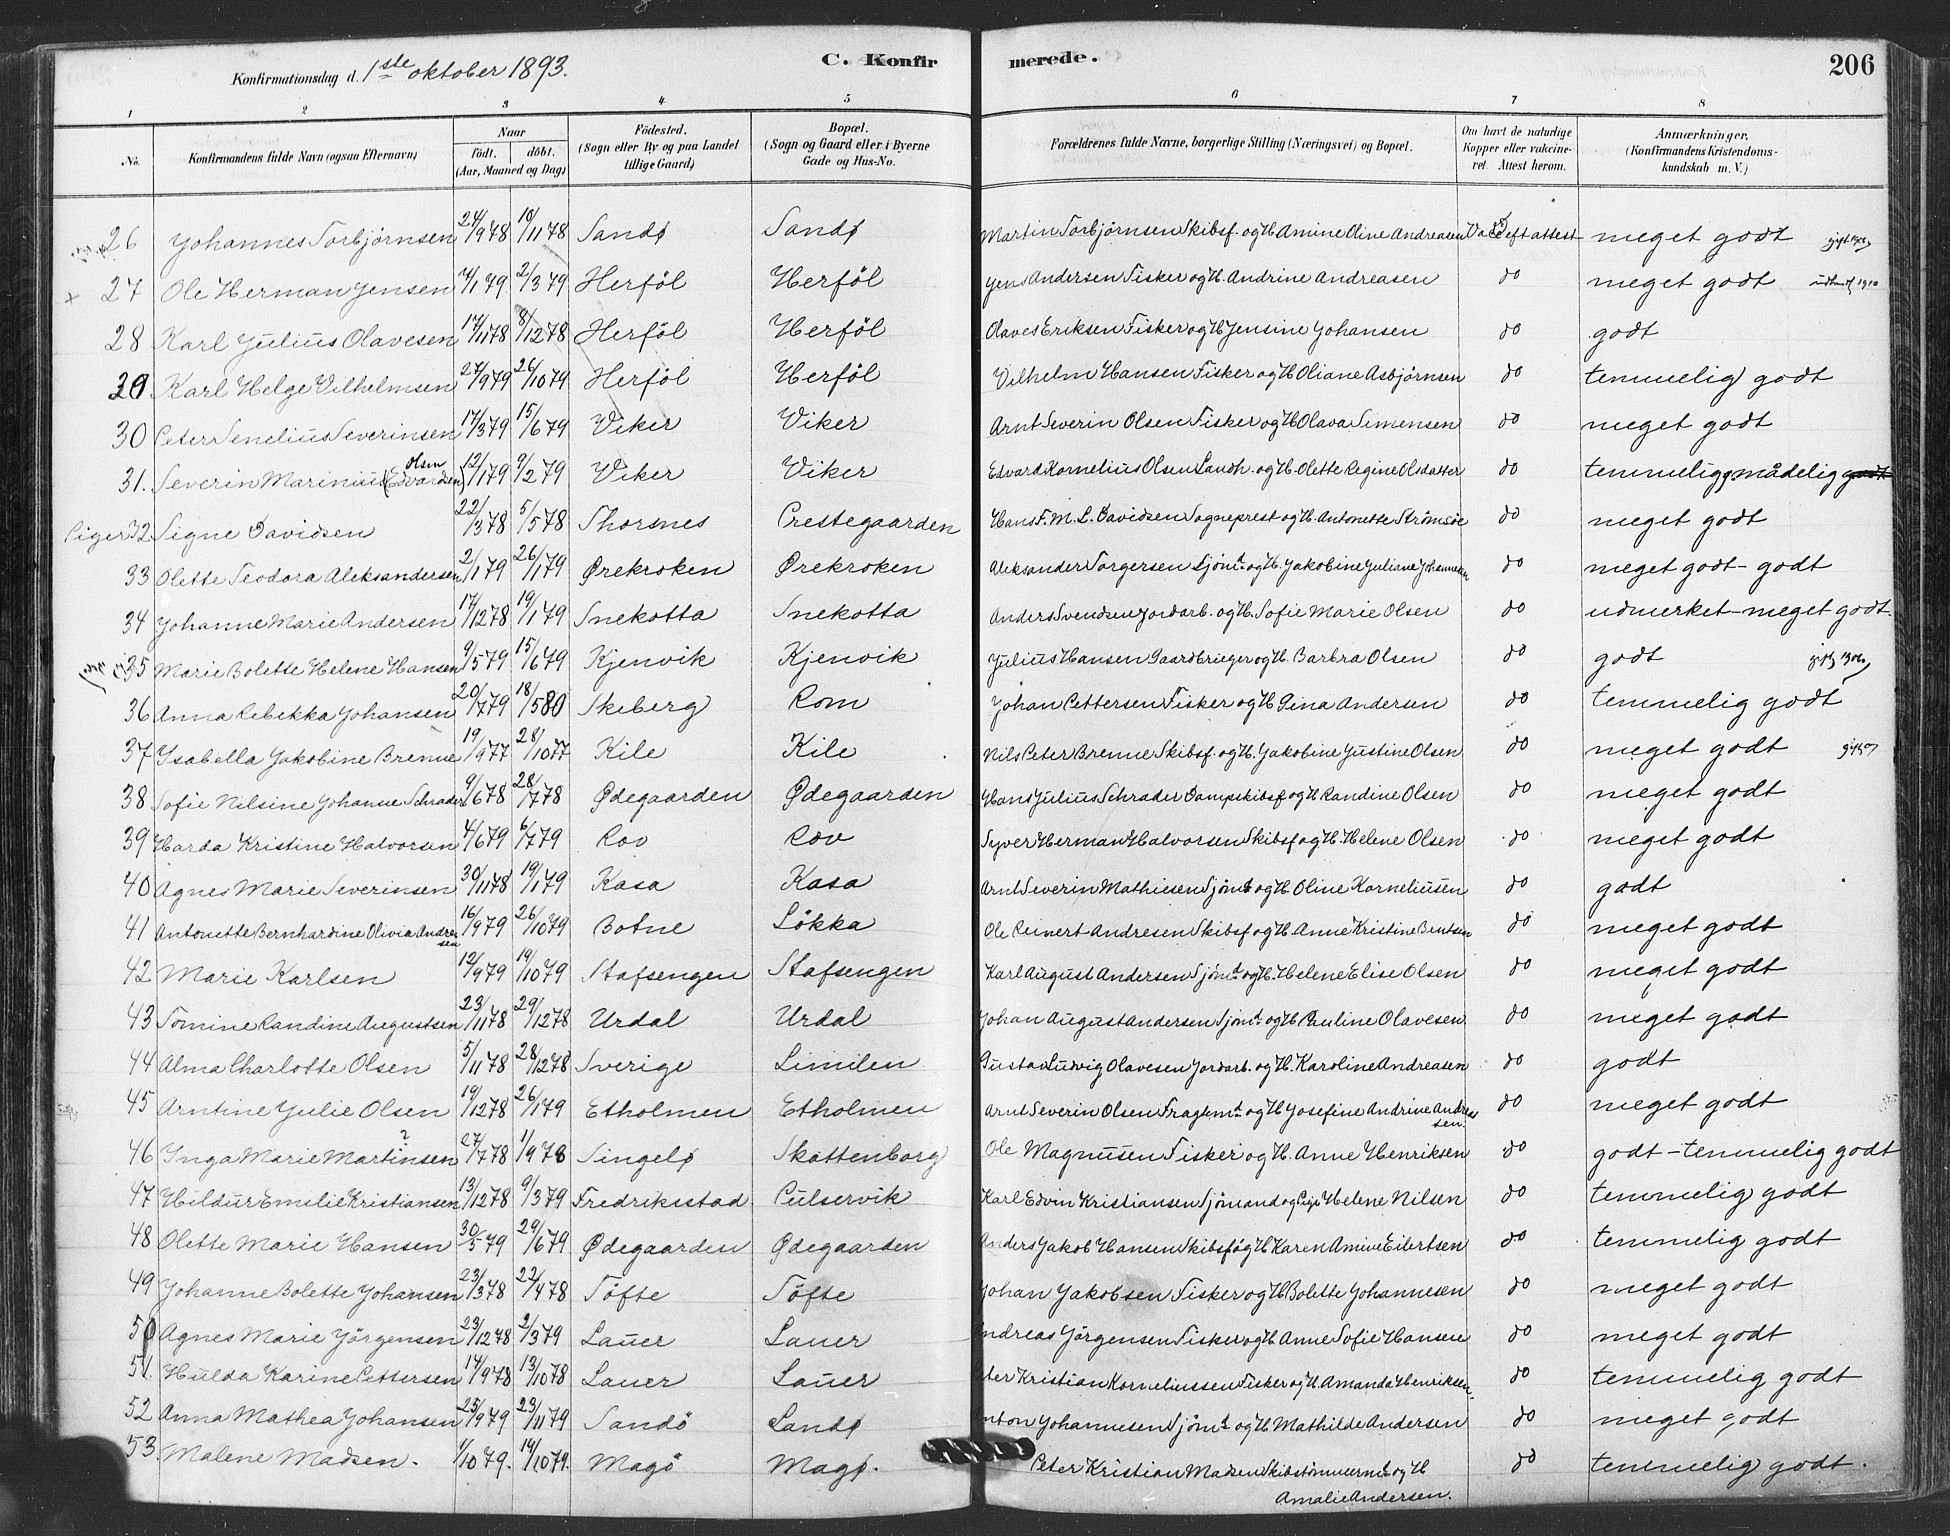 Konfirmationsdag d. 1ste oktober 1893. C. Konfirmerede. 206
1 2 3 4 5 6 7 8
No. Konfirmandens fulde Navn (ogsaa Efternavn) Naar födt. döbt. (Aar, Maaned og Dag) Födested. (Sogn eller By og paa Landet tillige Gaard) Bopæl. (Sogn og Gaard eller i Byerne Gade og Hus-No. Forældrenes fulde Navne, borgerlige Stilling (Næringsvei) og Bopæl. Om havt de naturlige Kopper eller vakcineret. Attest herom. Anmærkninger. (Konfirmandens Kristendomskundskab m. V.)
26 Johannes Torbjørnsen 24/9 78 10/11 78 Sandø Sandø Martin Torbjørnsen Skibsf. og H. Amine Oline Andreasen Vacc eft attest meget godt
27 Ole Herman Jensen 4/1 79 2/3 79 Herföl Herföl Jens Andersen Fisker og H. Andrine Andreasen do meget godt
28 Karl Julius Olavesen 14/11 78 8/12 78 Herföl Herföl Olaves Eriksen Fisker og H Jensine Johansen do godt
29 Karl Helge Vilhelmsen 27/9 79 26/10 79 Herföl Herföl Vilhelm Hansen Fisker og H Oliane Asbjørnsen do temmelig godt
30 Peter Senelius Severinsen 17/3 79 15/6 79 Viker Viker Arnt Severin Olsen Fisker og H Olava Simensen do meget godt
31. Severin Marinius (Edvardsen) Olsen 12/1 79 9/2 79 Viker Viker Edvard Kornelius Olsen Landh. og H. Olette Regine Olsdatter do temmelig mådelig godt
Piger 32 Signe Davidsen 22/3 78 5/5 78 Thorsnes Prestegaarden Hans F. M. L. Davidsen Sogneprest og H. Antonette Strömsöe do meget godt
33 Olette Teodora Aleksandersen 2/1 79 26/1 79 Ørekroken Ørekroken Aleksander Torgersen Sjömd. og H. Jakobine Juliane Johannesen do meget godt - godt
34 Johanne Marie Andersen 17/12 78 19/1 79 Snekotta Snekotta Anders Svendsen Jordarb. og H. Sofie Marie Olsen do udmerket - meget godt.
35 Marie Bolette Helene Hansen 9/5 79 15/6 79 Kjenvik Kjenvik Julius Hansen Gaardbruger og H. Barbra Olsen do godt
36 Anna Rebekka Johansen 20/7 79 18/5 80 Skeberg Rom Johan Pettersen Fisker og H Gina Andersen do temmelig godt
37 Isabella Jakobine Brenne 19/9 77 28/10 77 Kile Kile Nils Peter Brenne Skibsf. og H. Jakobine Justine Olsen do meget godt
38 Sofie Nilsine Johanne Schrader 9/6 78 28/7 78 Ødegaarden Ødegaarden Hans Julius Schrader Dampskibsf og H Randine Olsen do meget godt
39 Harda Kristine Halvorsen 4/6 79 6/7 79 Rov Rov Syver Herman Halvorsen Skibsf og H. Helene Olsen do meget godt
40 Agnes Marie Severinsen 30/11 78 19/1 79 Kasa Kasa Arnt Severin Mathisen Sjömd og H Oline Korneliusen do godt
41 Antonette Bernhardine Olivia Andresen 16/9 79 26/10 79 Botne Lökka Ole Reinert Andresen Skibsf og H. Anne Kristine Bentsen do meget godt
42 Marie Karlsen 12/9 79 19/10 79 Stafsengen Stafsengen Karl August Andersen Sjömd og H. Helene Elise Olsen do meget godt
43 Tomine Randine Augustsen 23/11 78 29/12 78 Urdal Urdal Johan August Andersen Sjömd og H Pauline Olavesen do meget godt
44 Alma Charlotte Olsen 5/11 78 28/12 78 Sverige Limilen Gustav Ludvig Olavesen Jordarb. og H. Karoline Andreasen do godt
45 Arntine Julie Olsen 19/12 78 26/1 79 Etholmen Etholmen Arnt Severin Olsen Fragtemd og H Josefine Andrine Andreasen. do meget godt
46 Inga Marie Martinsen ? 27/7 78 1/9 78 Singelø Skottenborg Ole Magnusen Fisker og H. Anne Henriksen do godt - temmelig godt
47 Hildur Emilie Kristiansen 13/12 78 9/3 79 Fredriksstad Pulservik Karl Edvin Kristiansen Sjömand og Pige Helene Nilsen do temmelig godt
48 Olette Marie Hansen 30/5 79 29/6 79 Ødegaarden Ødegaarden Anders Jakob Hansen Skibsf og H Karen Amine Eilertsen do temmelig godt
49 Johanne Bolette Johansen 23/3 78 22/4 78 Töfte Töfte Johan Jakobsen Fisker og H Bolette Johannesen do meget godt
50 Agnes Marie Jörgensen 23/12 78 2/3 79 Lauer Lauer Andreas Jörgensen Fisker og H Anne Sofie Hansen do meget godt
51. Hulda Karine Pettersen 14/9 78 13/10 78 Lauer Lauer Peter Kristian Korneliussen Fisker og H. Amanda Henriksen. do temmelig godt
52 Anna Mathea Johansen 25/9 79 23/11 79 Sandö Sandø Anton Johannesen Sjömd og H Mathilde Andersen do meget godt
53. Malene Madsen. 1/10 79. 19/10 79. Magö Magø. Peter Kristian Madsen Skibstömmermd og H Amalie Andersen. do temmelig godt.